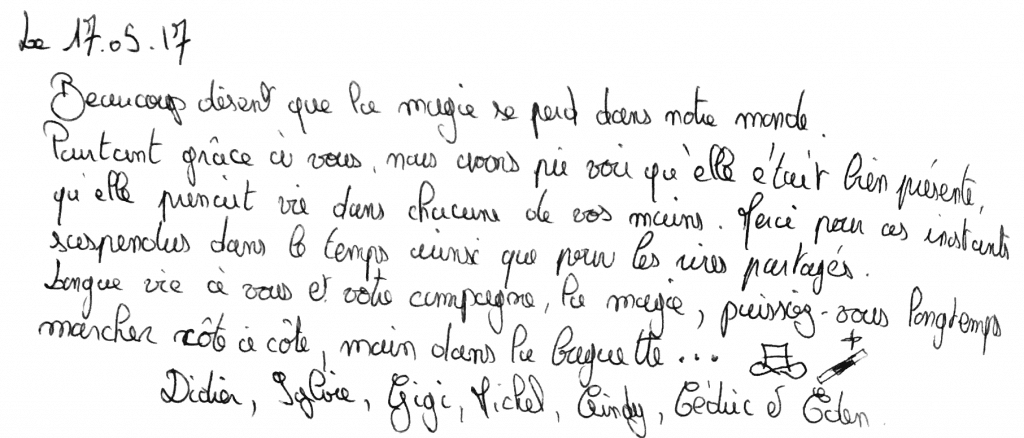 Le 17.05.17
Beaucoup disent que la magie se perd dans notre monde.
Pourtant grâce à vous, nous avons pu voir qu'elle était bien présente,
qu'elle prenait vie dans chacune de vos mains. Merci pour ces instants
suspendus dans le temps ainsi que pour les rires partagés.
Longue vie à vous et votre compagne, la magie, puissiez-vous longtemps
marcher côte à côte, main dans la baguette...
Didier, Sylvie, Gigi, Michel, Cindy, Cédric et Eden